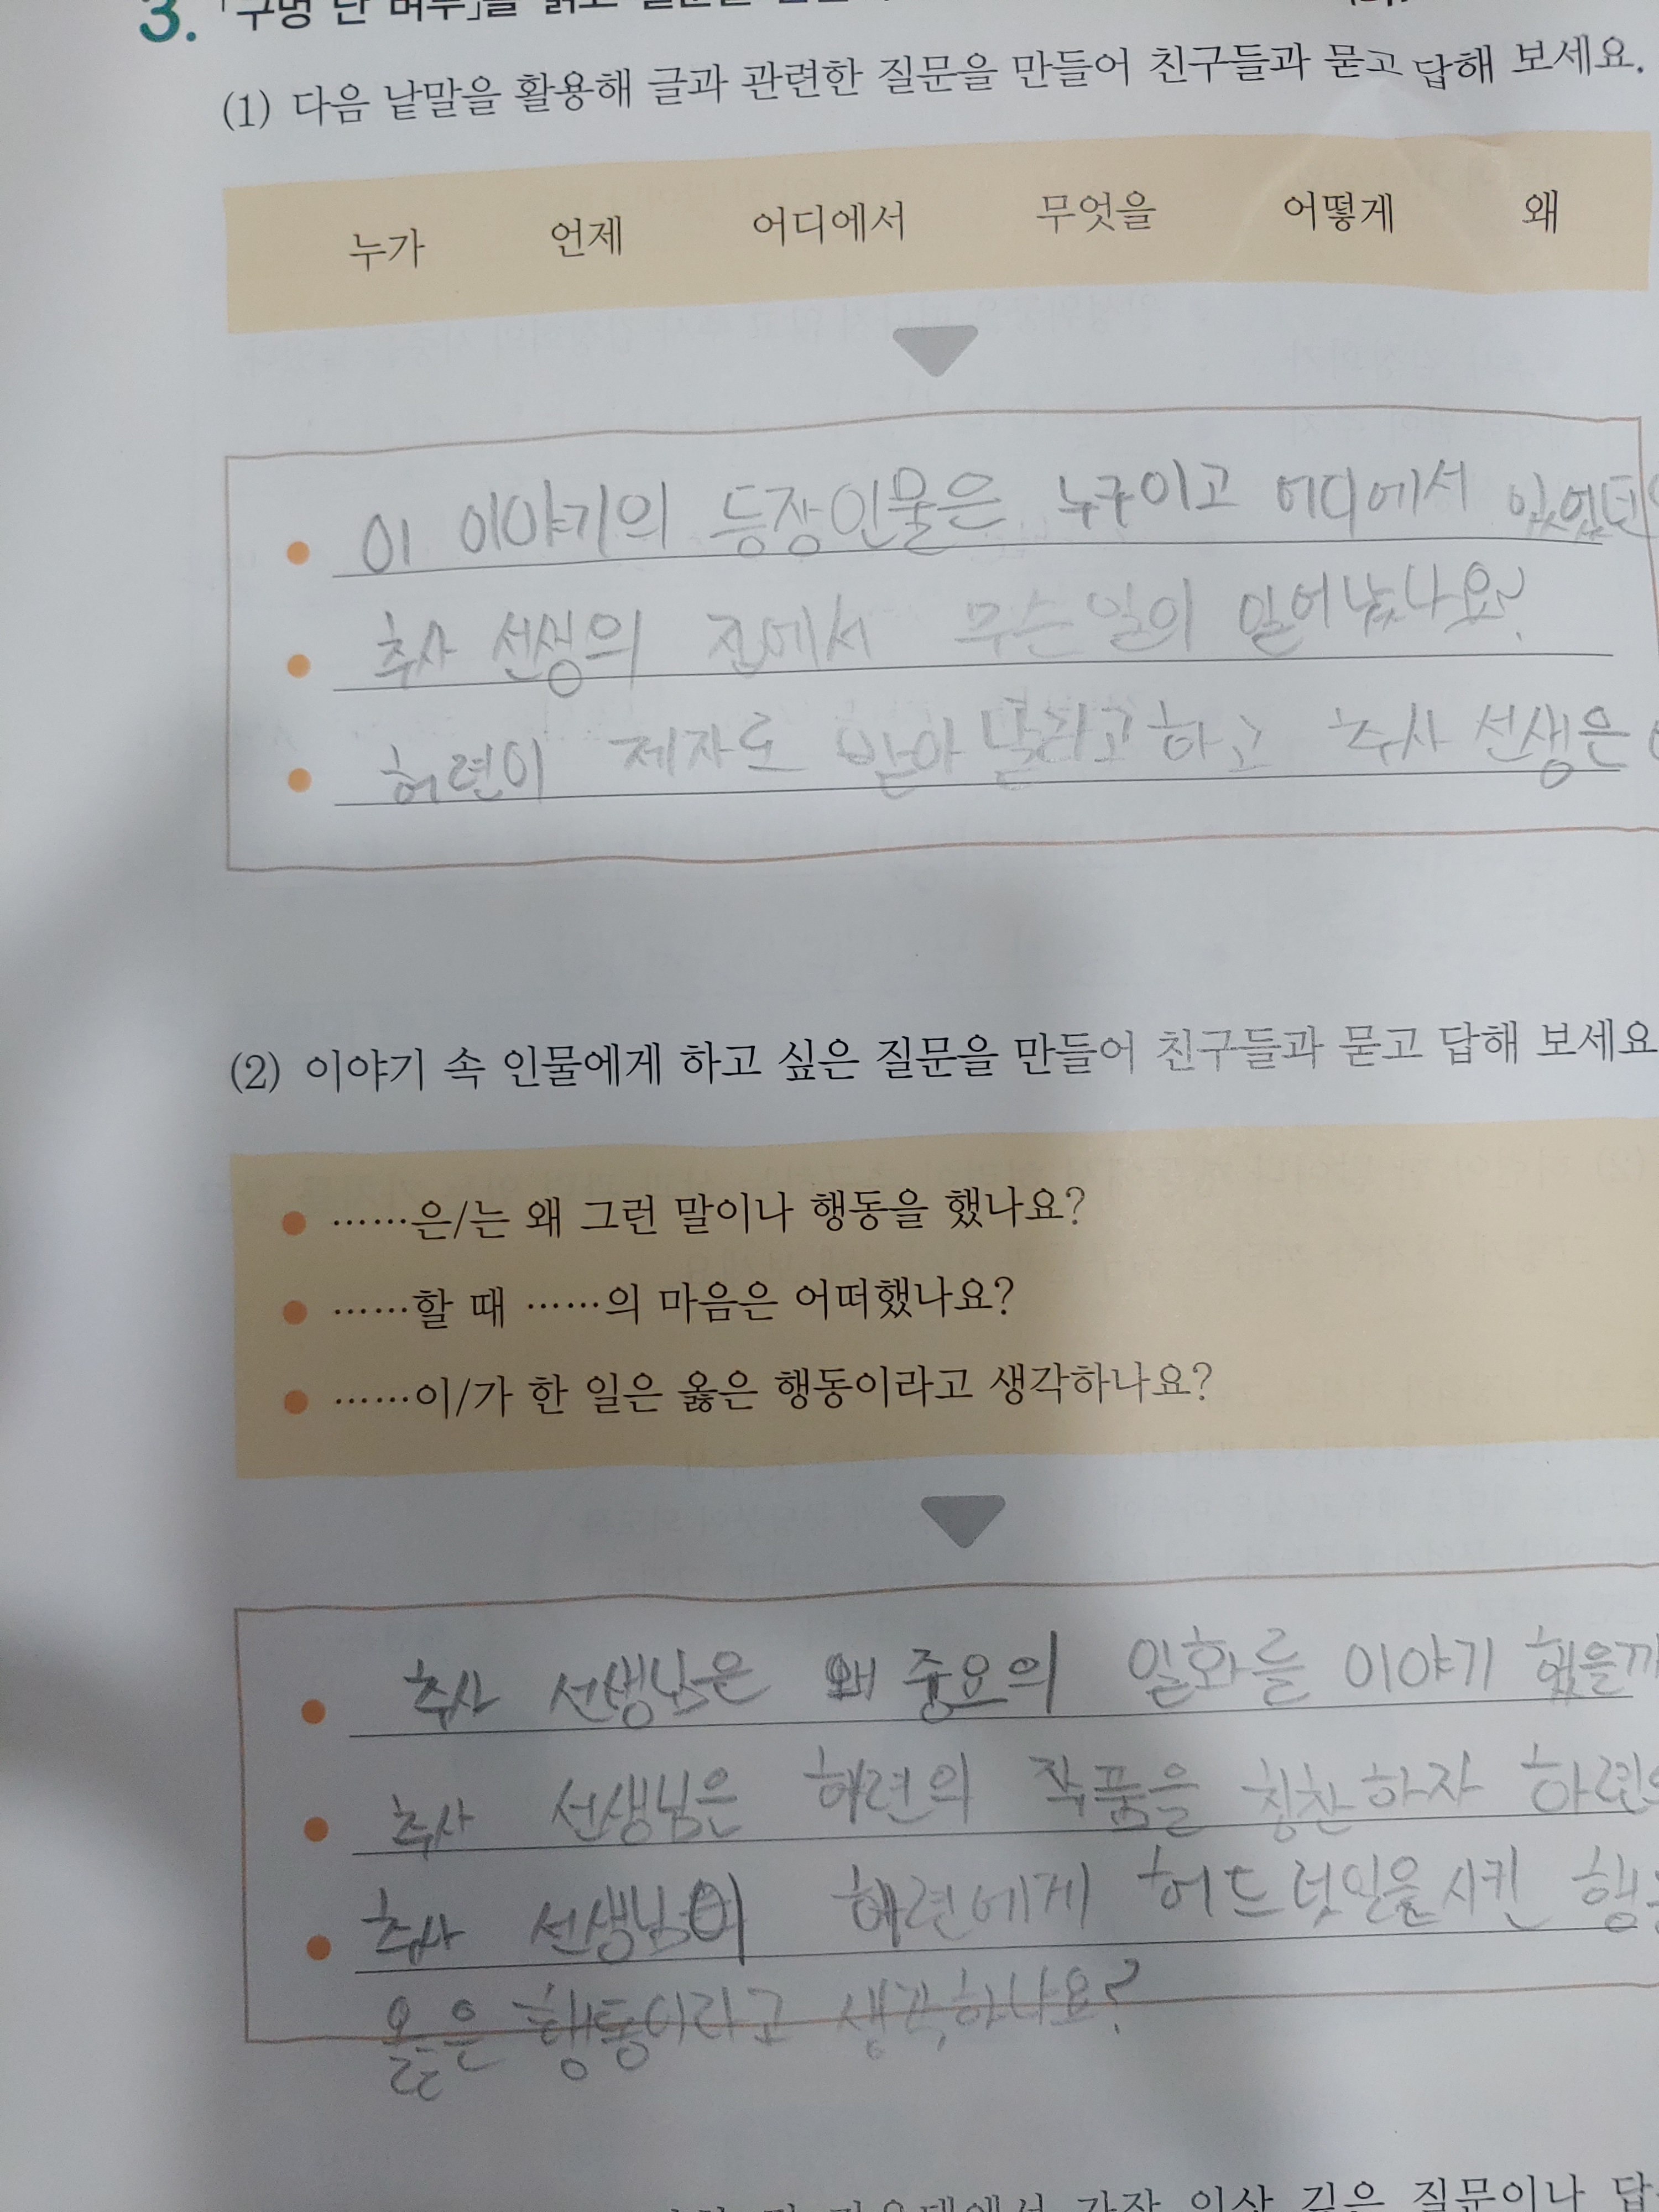 3. 「구멍 난 벼루」를 읽고 질문을
(1) 다음 낱말을 활용해 글과 관련한 질문을 만들어 친구들과 묻고 답해 보세요.
누가 언제 어디에서 무엇을 어떻게 왜
이 이야기의 등장인물은 누구이고 어디에서 있었던
추사 선생의 집에서 무슨일의 일어났나요?
허련이 제자로 받아 달라고 하고 추사 선생은
(2) 이야기 속 인물에게 하고 싶은 질문을 만들어 친구들과 묻고 답해 보세요
……은/는 왜 그런 말이나 행동을 했나요?
……할 때 ……의 마음은 어떠했나요?
……이/가 한 일은 옳은 행동이라고 생각하나요?
추사 선생님은 왜 중요의 일화를 이야기 했을까
추사 선생님은 허련의 작품을 칭찬하자 하련의
추사 선생님이 허련에게 허드렛일을 시킨
옳은 행동이라고 생각하나요?
가장 인상 깊은 질문이나 답